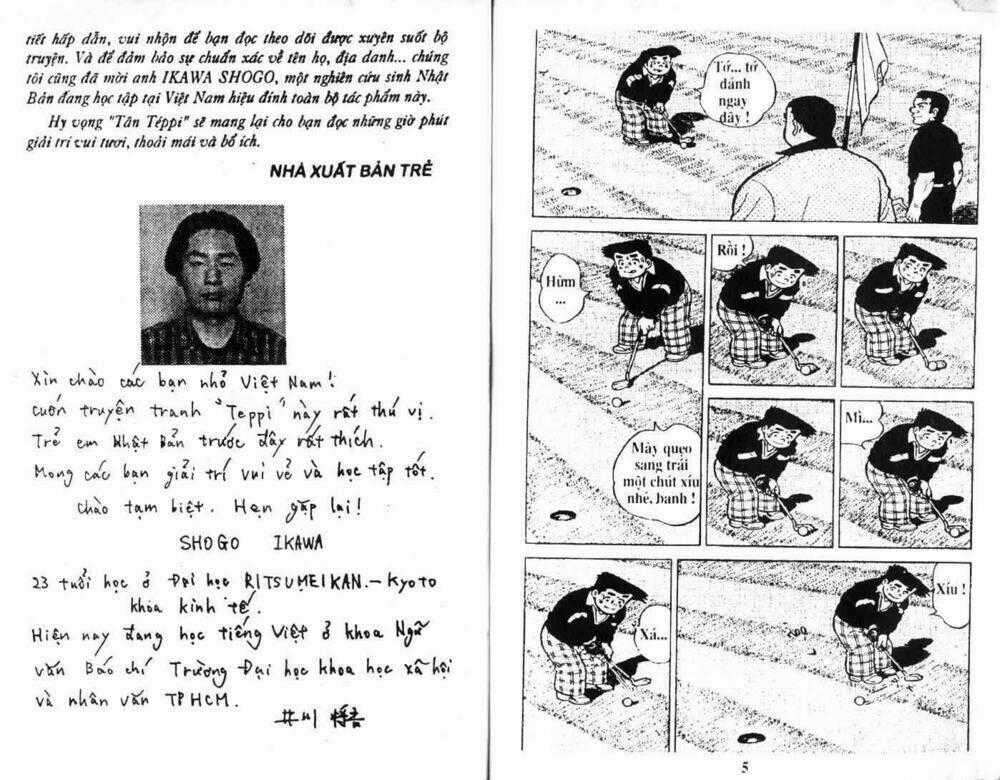 tiết hấp dẫn, vui nhộn để bạn đọc theo dõi được xuyên suốt bộ
truyện. Và để đảm bảo sự chuẩn xác về tên họ, địa danh... chúng
tôi cũng đã mời anh IKAWA SHOGO, một nghiên cứu sinh Nhật
Bản đang học tập tại Việt Nam hiệu đính toàn bộ tác phẩm này.
Hy vọng "Tân Téppi" sẽ mang lại cho bạn đọc những giờ phút
giải trí vui tươi, thoải mái và bổ ích.
NHÀ XUẤT BẢN TRẺ
Xin chào các bạn nhỏ Việt Nam!
Cuốn truyện tranh "Teppi" này rất thú vị.
Trẻ em Nhật Bản trước đây rất thích.
Mong các bạn giải trí vui vẻ và học tập tốt.
Chào tạm biệt. Hẹn gặp lại!
SHOGO IKAWA
23 tuổi học ở Đại học RITSUMEIKAN.-Kyoto
khoa kinh tế.
Hiện nay đang học tiếng Việt ở khoa Ngữ
văn Báo chí Trường Đại học khoa học xã hội
và nhân văn TPHCM.
井川
Tớ... tớ
đánh
ngay
đây !
Hừm
...
Rồi !
Mày quẹo
sang trái
một chút xíu
nhé, banh !
Mì...
Xá...
Xíu !
5